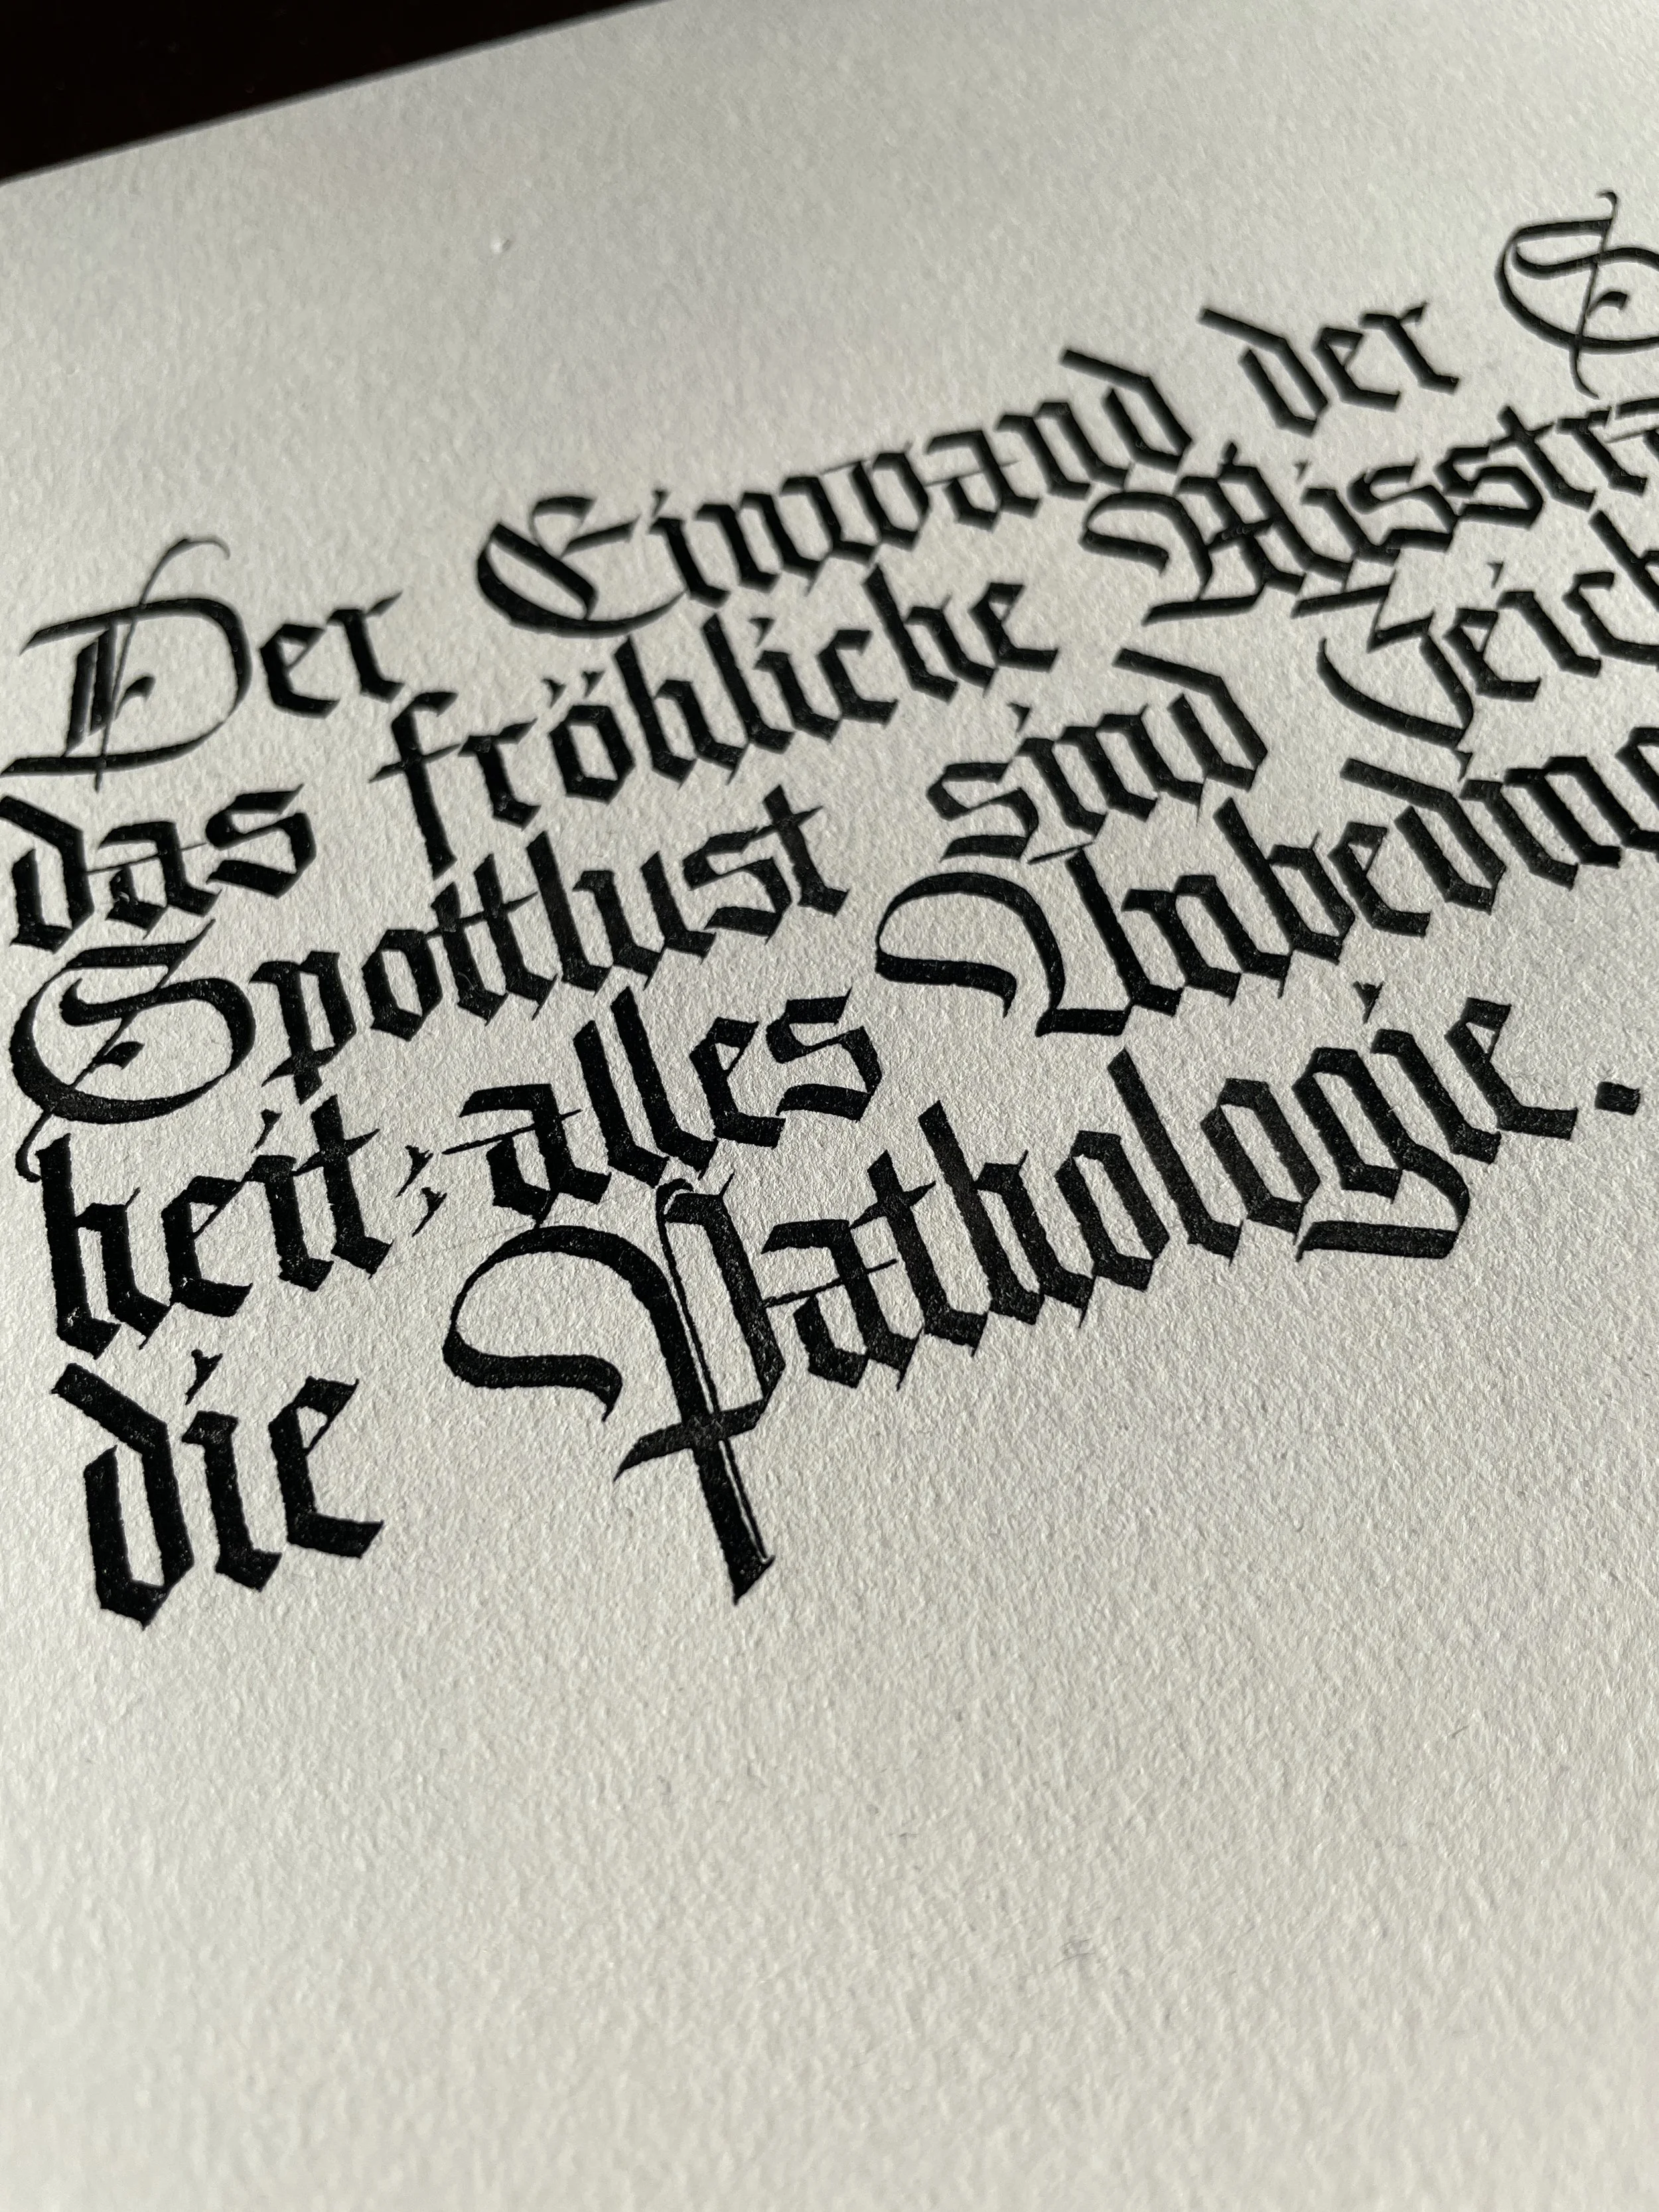 Der Einwand der S
das fröhliche Misstra
Spottlust sind Zeich
heit; alles Unbedin
die Pathologie.